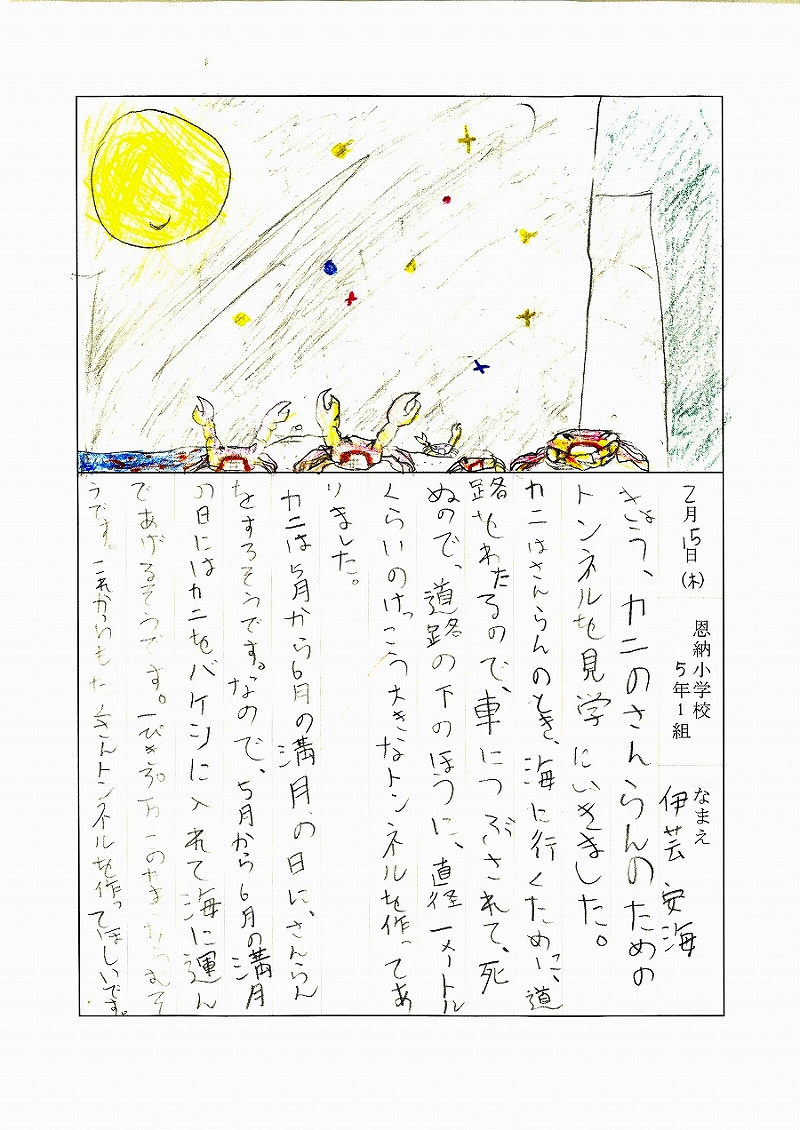 2月15日(木)
恩納小学校
5年1組
なまえ
伊芸 安海
きょう、カニのさんらんのための
トンネルを見学にいきました。
カニはさんらんのとき、海に行くために、道
路をわたるので、車につぶされて、死
ぬので、道路の下のほうに、直径一メートル
くらいのけっこう大きなトンネルを作ってあ
りました。
カニは5月から6月の満月の日に、さんらん
をするそうです。なので、5月から6月の満月
の日にはカニをバケツに入れて海に運ん
であげるそうです。一ぴき30万このたまごをうむそ
うです。これからもたくさんトンネルを作ってほしいです。